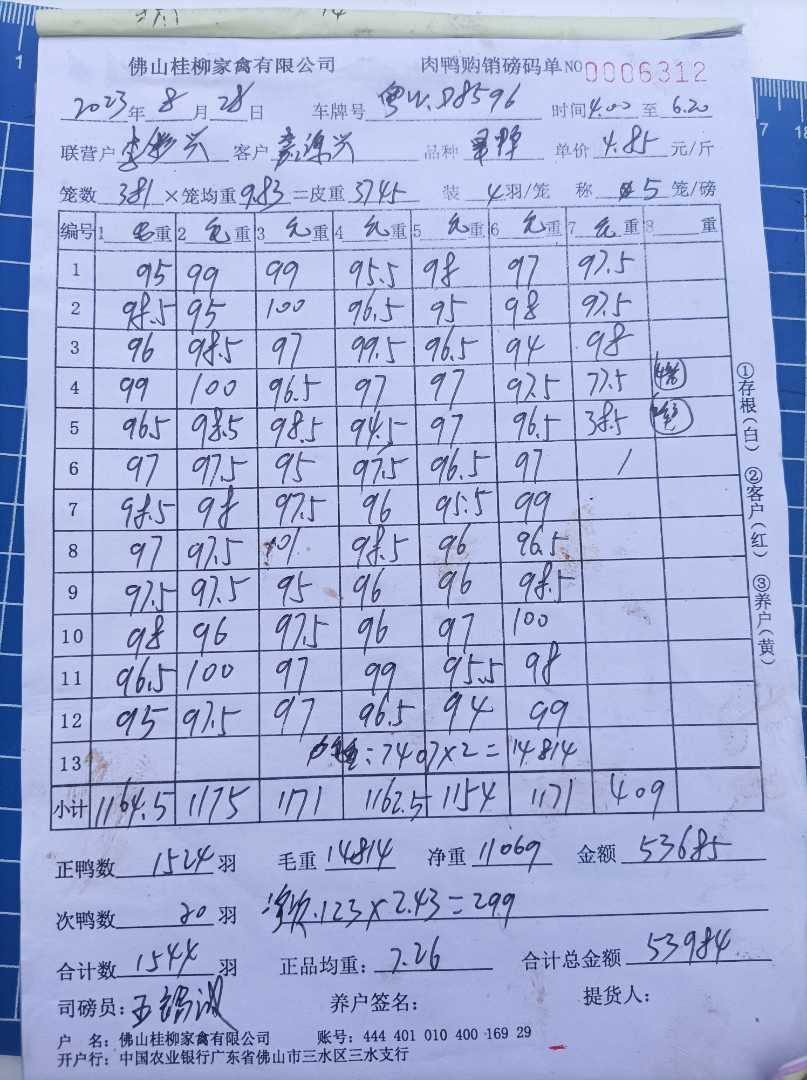 佛山桂柳家禽有限公司 肉鸭购销磅码单 NO 0006312
2023年 8月 28日 车牌号 粤W.D8596 时间 4.00 至 6.20
联营户 兴 客户 兴 品种 单价 4.85 元/斤
笼数 381 ×笼均重 9.83 =皮重 3745 装 4 羽/笼 称 5 笼/磅
编号 1 毛重 2 毛重 3 毛重 4 毛重 5 毛重 6 毛重 7 毛重 8 重
1 95 99 99 95.5 98 97 97.5
2 98.5 95 100 96.5 95 98 97.5
3 96 98.5 97 99.5 96.5 94 98
4 99 100 96.5 97 97 97.5 77.5
5 96.5 98.5 98.5 94.5 97 96.5 38.5
6 97 97.5 95 97.5 96.5 97 /
7 98.5 98 97.5 96 95.5 99
8 97 97.5 101 98.5 96 96.5
9 97.5 97.5 95 96 96 98.5
10 98 96 97.5 96 97 100
11 96.5 100 97 99 95.5 98
12 95 97.5 97 96.5 94 99
13 : 7407×2=14814
小计 1164.5 1175 1171 1162.5 1154 1171 409
正鸭数 1524 羽 毛重 14814 净重 11069 金额 53685
次鸭数 20 羽 123×2.43=299
合计数 1544 羽 正品均重: 7.26 合计总金额 53984
司磅员: 养户签名: 提货人:
户 名: 佛山桂柳家禽有限公司 账号: 444 401 010 400 169 29
开户行: 中国农业银行广东省佛山市三水区三水支行
①存根(白) ②客户(红) ③养户(黄)